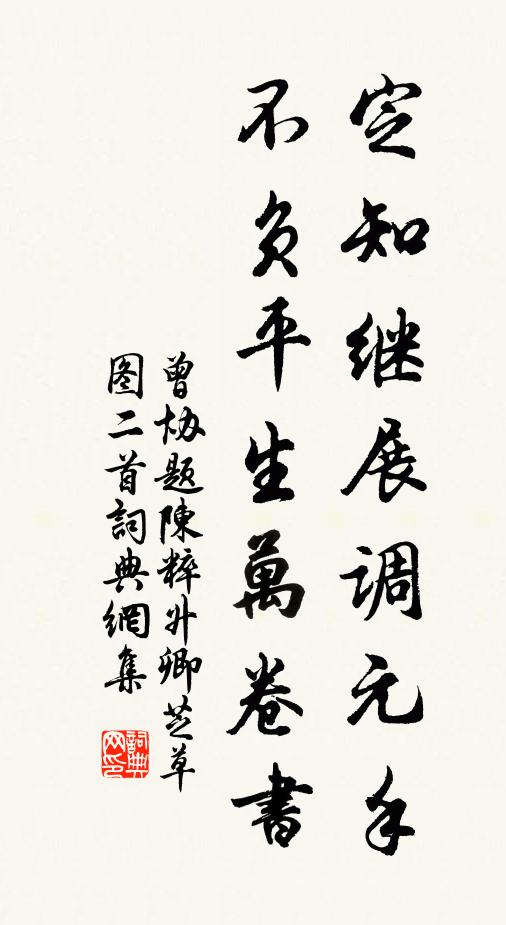 定知继展调元手
不负平生萬卷書
曾协題陳粹升卿芝草
图二首詞典網集
詞典网印